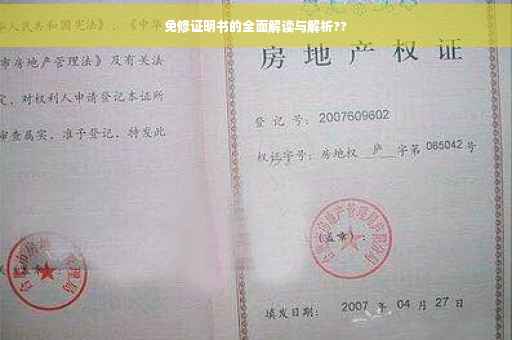 免修证明书的全面解读与解析??
人民共和国宪法》、《中华
市房地产管理法》及有关法
定，对权利人申请登记本证所
审查属实，准予登记，特发此
房地产权证
登记号：2007609602
权证字号：房地权 庐 字第 065042 号
（盖章）：
填发日期： 2007 年 04 月 27 日